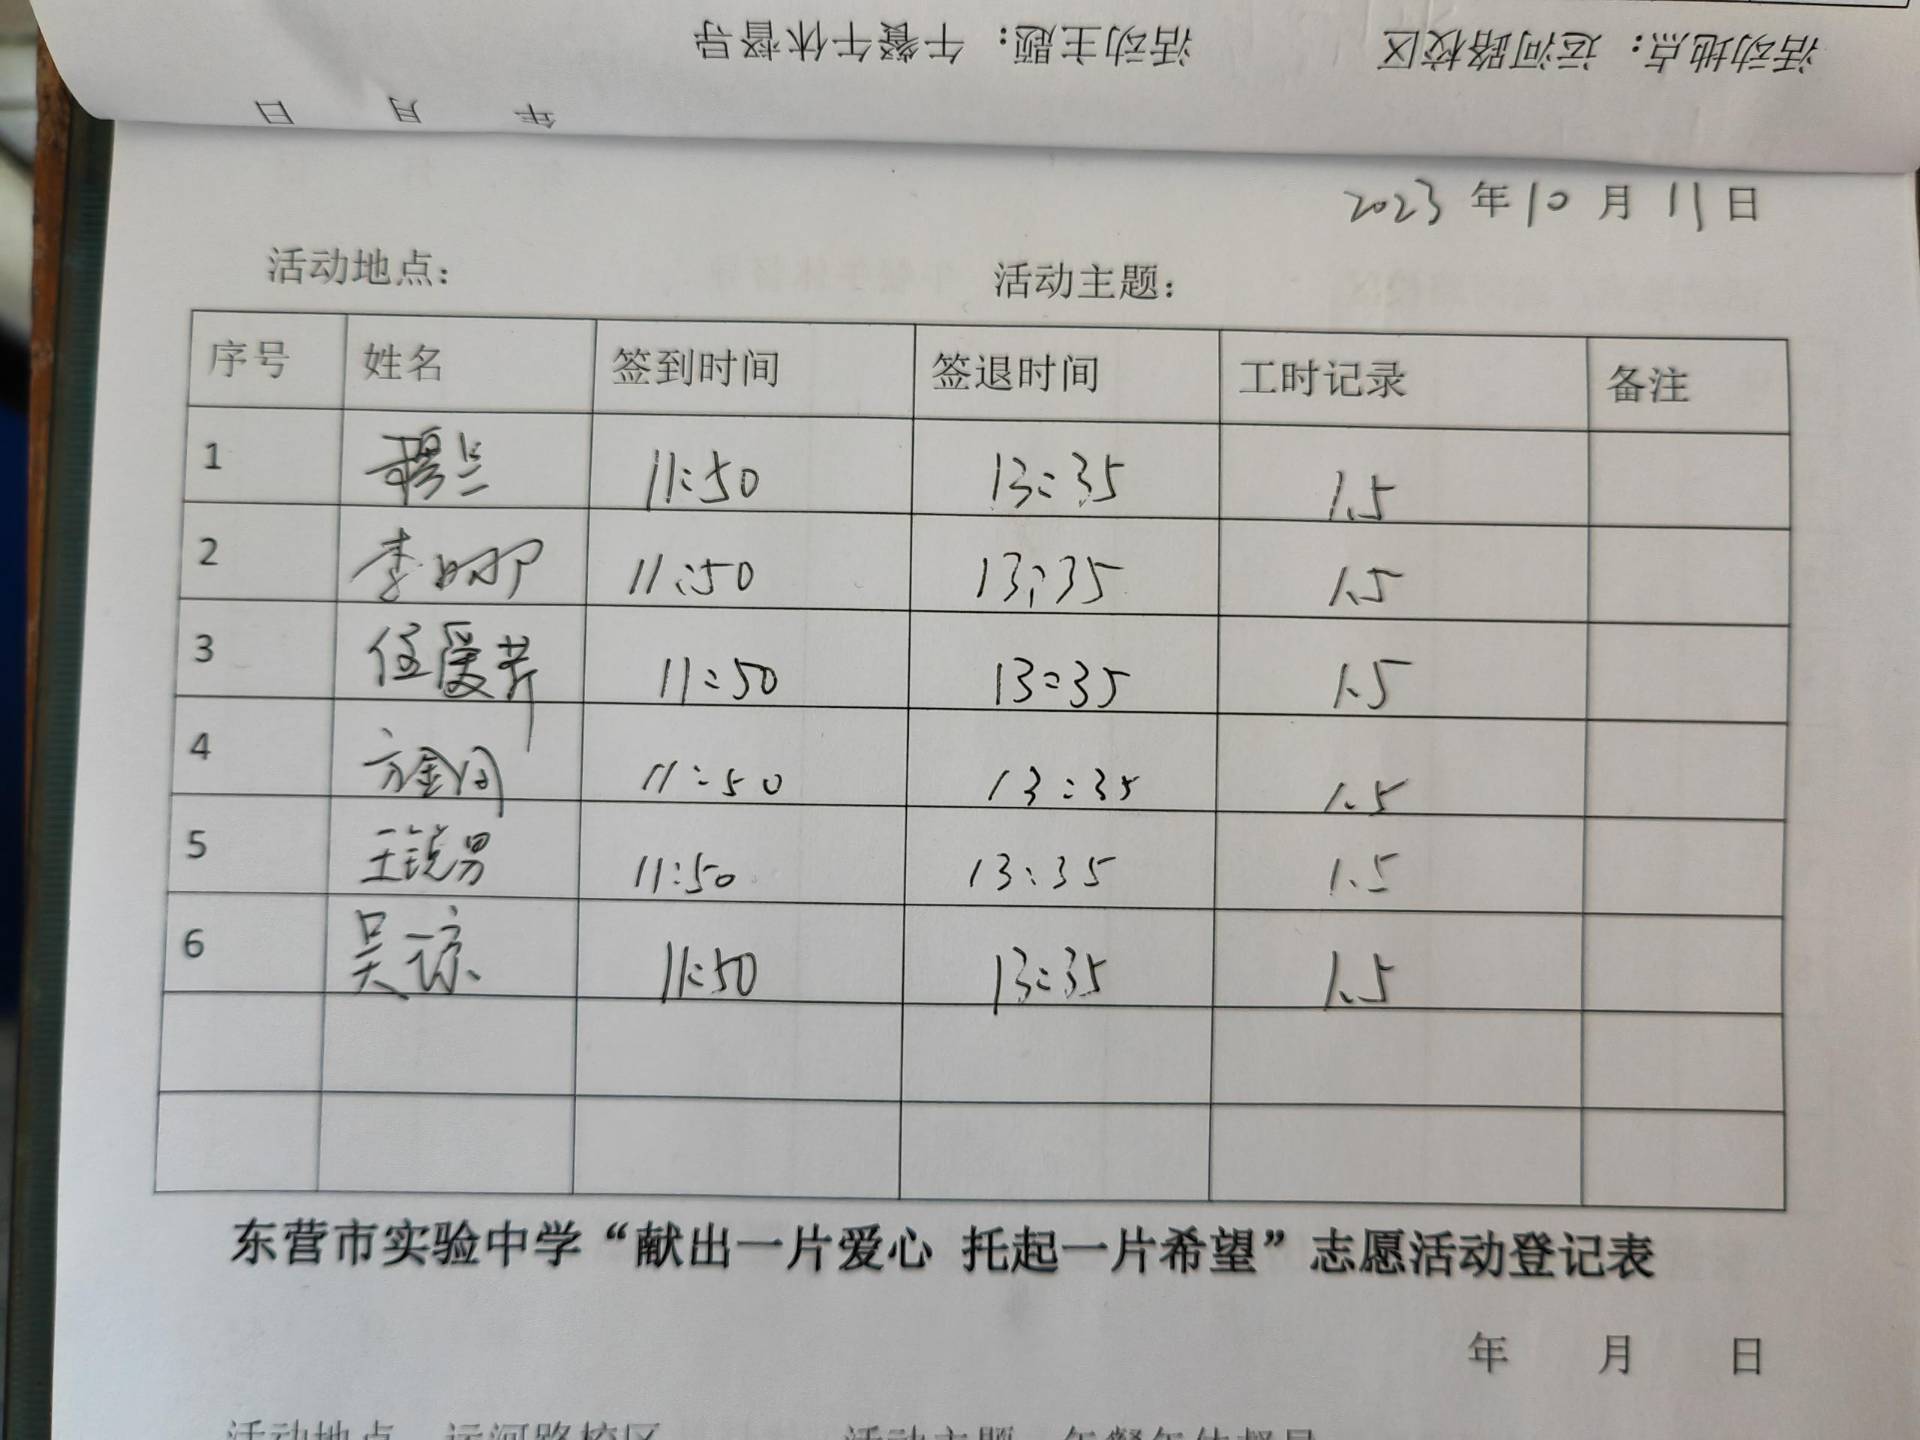 活动地点：运河路校区 活动主题：午餐午休督导
年 月 日
2023 年 10 月 11 日
活动地点： 活动主题：
序号 姓名 签到时间 签退时间 工时记录 备注
1 穆兰 11:50 13:35 1.5
2 李娜 11:50 13:35 1.5
3 任爱芹 11:50 13:35 1.5
4 方金 11:50 13:35 1.5
5 王锐男 11:50 13:35 1.5
6 吴琼 11:50 13:35 1.5
东营市实验中学“献出一片爱心 托起一片希望”志愿活动登记表
年 月 日
活动地点 运河路校区 活动主题 午餐午休督导